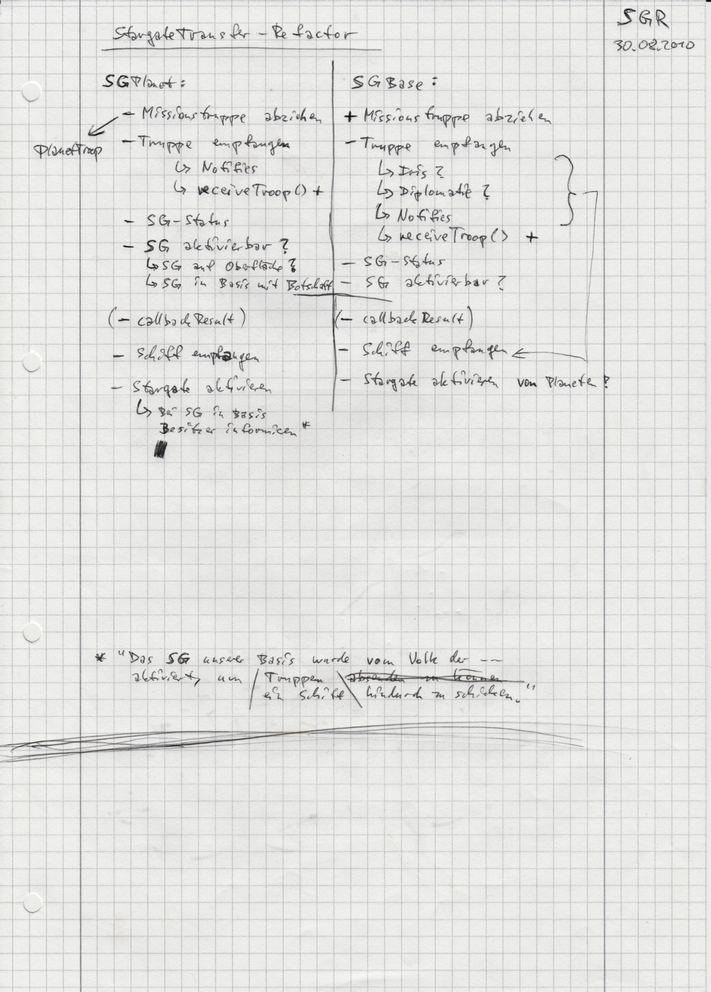 StargateTransfer - Refactor
SGR
30.08.2010
SGPlanet:
- Missionstruppe abziehen
PlanetTroop
- Truppe empfangen
↳ Notifies
↳ receiveTroop() +
- SG-Status
- SG aktivierbar?
↳ SG auf Oberfläche?
↳ SG in Basis mit Botschaft
(- callbackResult)
- Schiff empfangen
- Stargate aktivieren
↳ Bei SG in Basis
Besitzer informieren*
SGBase:
+ Missionstruppe abziehen
- Truppe empfangen
↳ Iris?
↳ Diplomatie?
↳ Notifies
↳ receiveTroop() +
- SG-Status
- SG aktivierbar?
(- callbackResult)
- Schiff empfangen
- Stargate aktivieren von Planeten?
* "Das SG unserer Basis wurde vom Volk der --
aktiviert, um / Truppen \ absenden zu können
ein Schiff hindurch zu schicken."